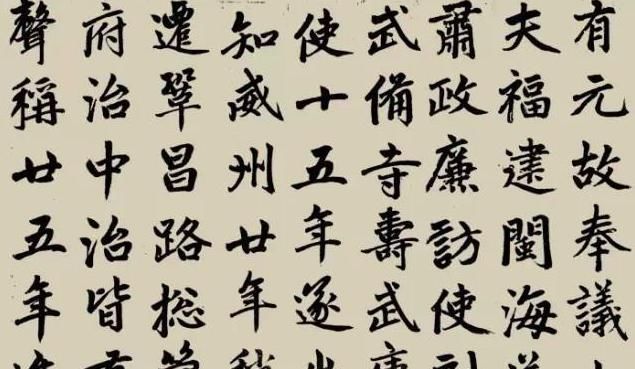 有元故奉議
夫福建閩海
肅政廉訪使
武備寺壽武
使十五年遂
知威州廿年
遷鞏昌路総
府治中治皆
聲稱廿五年